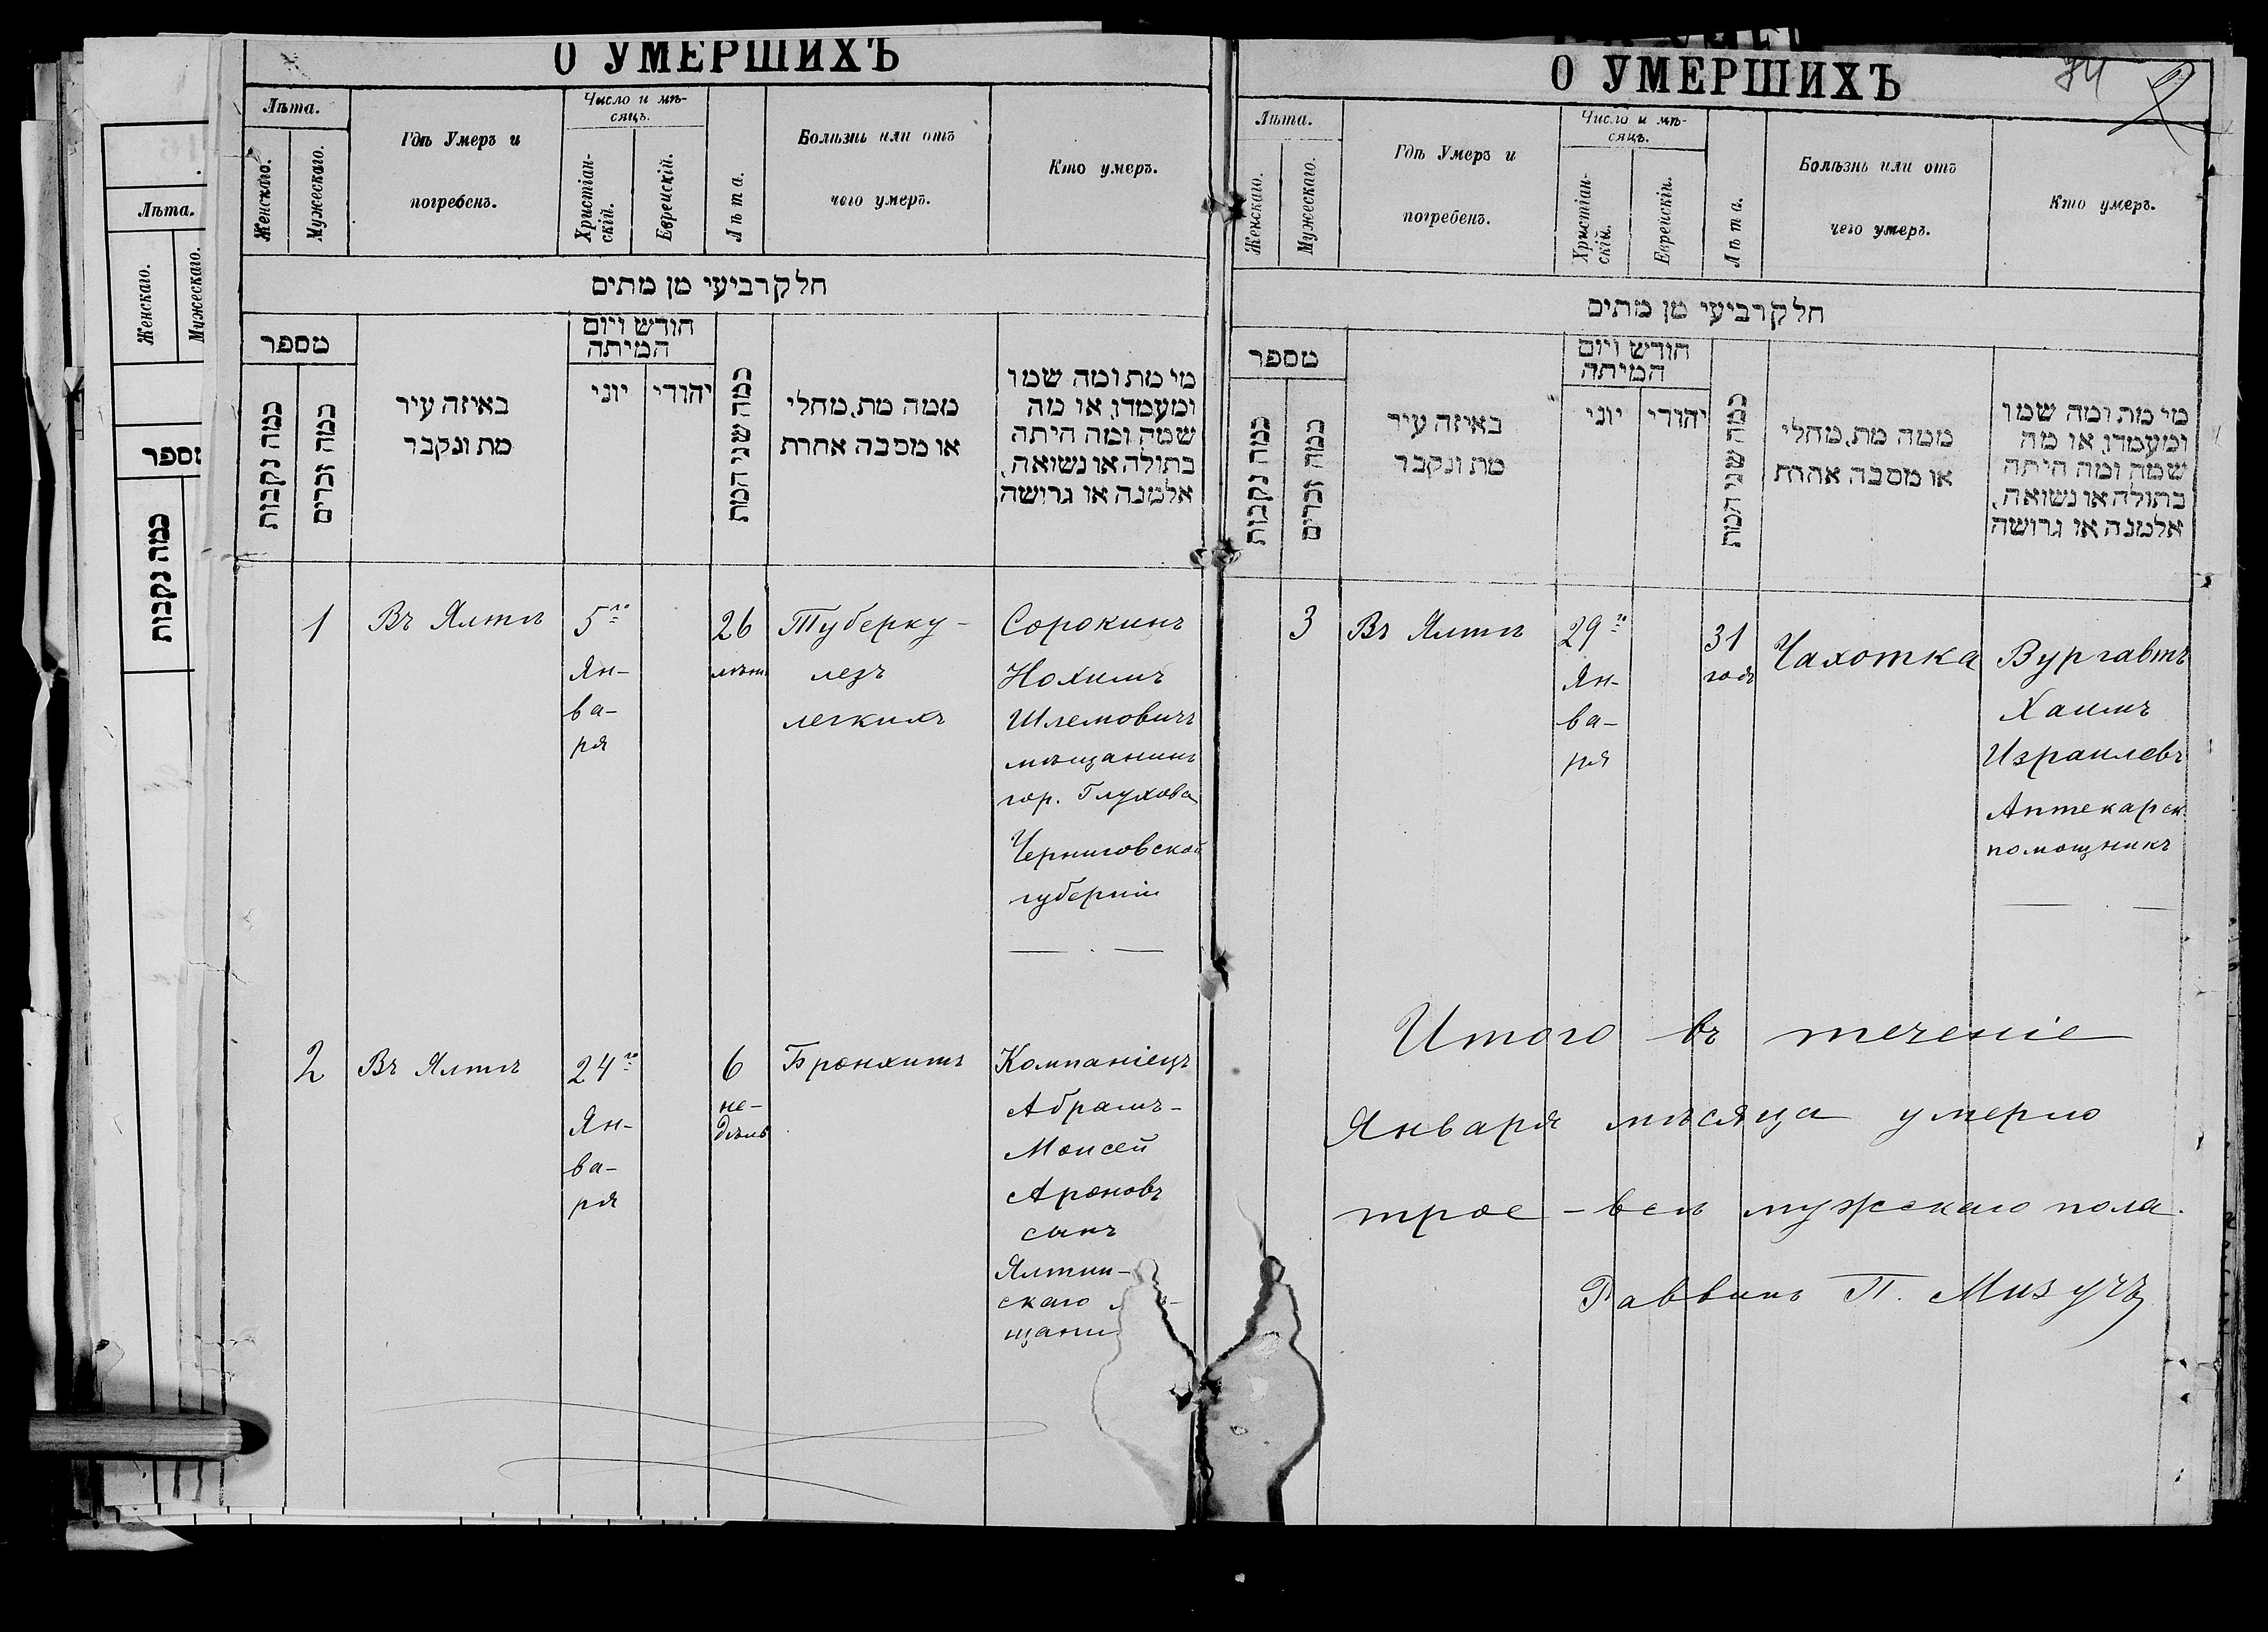 О УМЕРШИХЪ
Лѣта.
Женскаго.
Мужескаго.
Гдѣ Умеръ и
погребенъ.
Число и мѣ-
сяцъ.
Христіан-
скій.
Еврейскій.
Лѣта.
Болѣзнь или отъ
чего умеръ.
Кто умеръ.
חלק רביעי מן מתים
מספר
כמה נקבות
כמה זכרים
באיזה עיר
מת ונקבר
חודש ויום
המיתה
יוני
יהודי
כמה שני המת
ממה מת, מחלי
או מסבה אחרת
מי מת ומה שמו
ומעמדו, או מה
שמה ומה היתה
בתולה או נשואה,
אלמנה או גרושה
1
Въ Ялтѣ
5го
Ян-
ва-
ря
26
лѣтъ
Туберку-
лезъ
легкихъ
Сорокинъ
Нохимъ
Шлемовичъ
мѣщанинъ
гор. Глухова
Черниговской
губерніи
2
Въ Ялтѣ
24го
Ян-
ва-
ря
6
не-
дѣль
Бронхитъ
Компаніецъ
Абрамъ-
Моисей
Ароновъ
сынъ
Ялтин-
скаго
щани
О УМЕРШИХЪ
74
2
Лѣта.
Женскаго.
Мужескаго.
Гдѣ Умеръ и
погребенъ.
Число и мѣ-
сяцъ.
Христіан-
скій.
Еврейскій.
Лѣта.
Болѣзнь или отъ
чего умеръ.
Кто умеръ.
חלק רביעי מן מתים
מספר
כמה נקבות
כמה זכרים
באיזה עיר
מת ונקבר
חודש ויום
המיתה
יוני
יהודי
כמה שני המת
ממה מת, מחלי
או מסבה אחרת
מי מת ומה שמו
ומעמדו, או מה
שמה ומה היתה
בתולה או נשואה,
אלמנה או גרושה
3
Въ Ялтѣ
29го
Ян-
ва-
ря
31
годъ
Чахотка
Вургавтъ
Хаимъ
Израилевъ
Аптекарск
помощникъ
Итого въ теченіе
Января мѣсяца умерло
трое - всѣ мужскаго пола.
Раввинъ П. Мизучъ
Лѣта.
Женскаго.
Мужескаго.
כמה נקבות